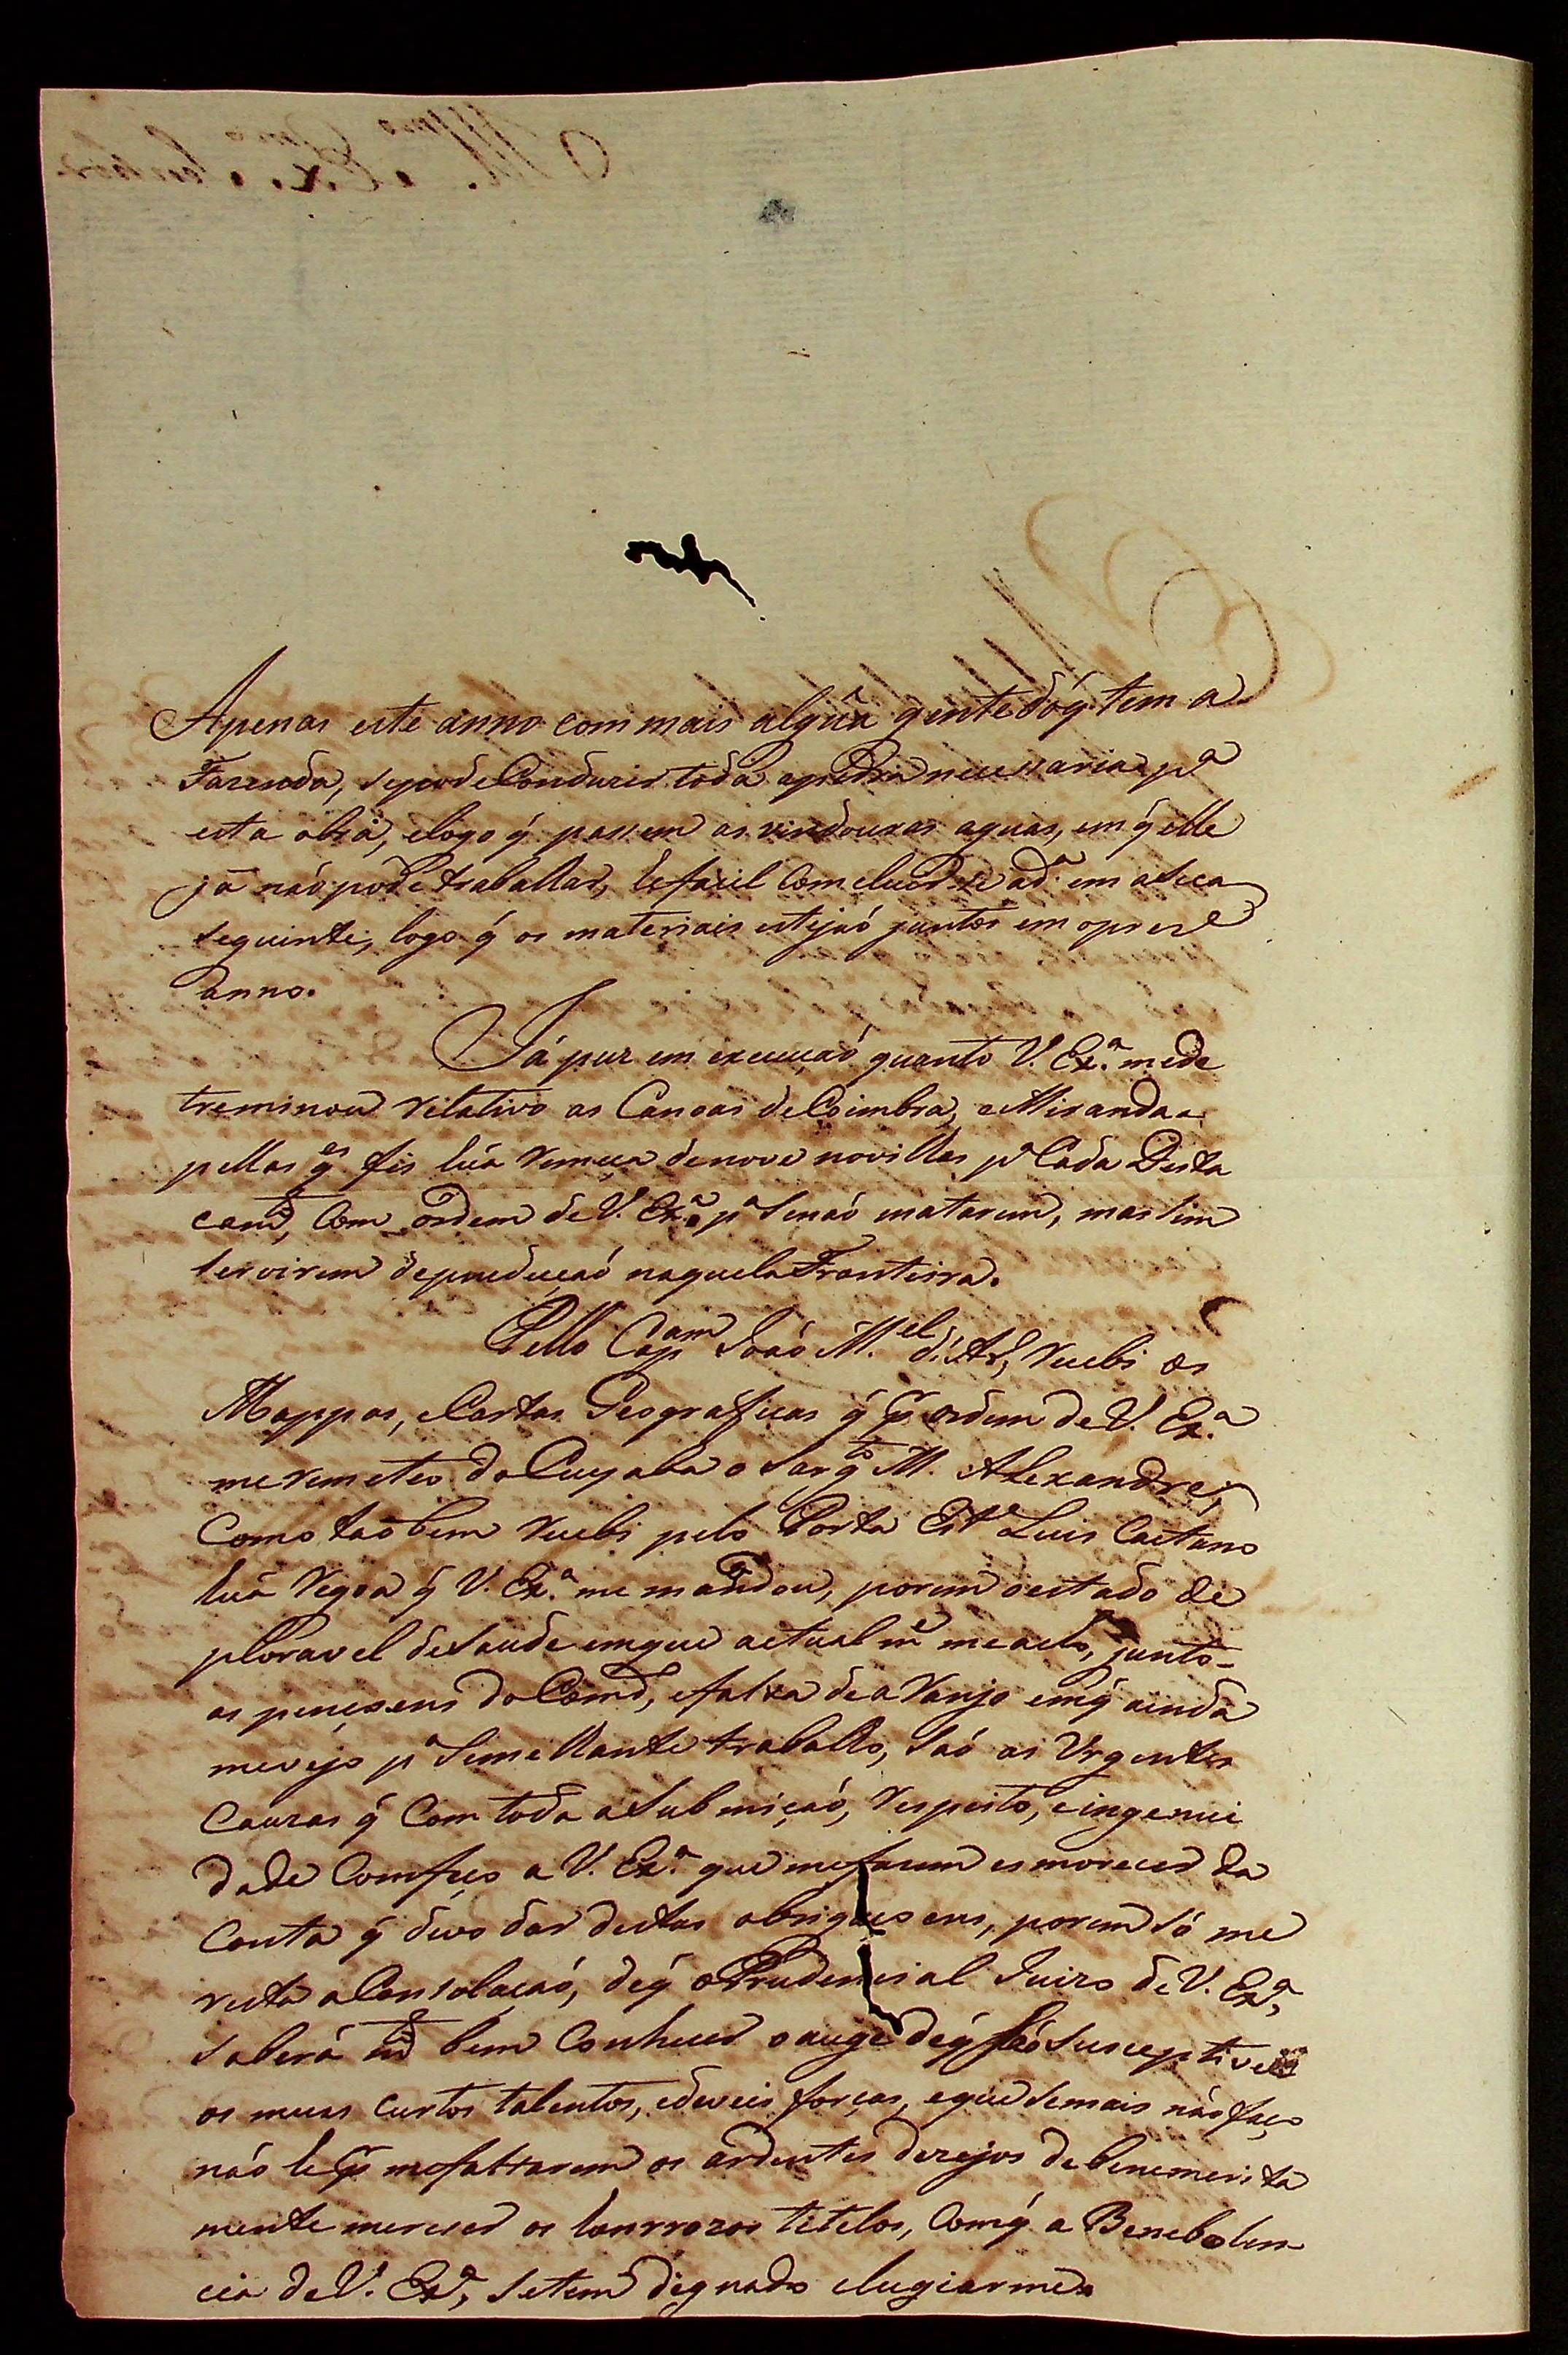 Apenas este anno com mais algũa gente dóq̃ tem a
Fazenda, sepode Conduzir toda apedra necessaria pª
esta obra, elogo q̃ passem as vindouras aguas, em q̃ elle
já naó pode traballar, hefacil Comcluirse adª em aseca
seguinte, logo q̃ os materiais estejaó juntos em opreze
anno.
Já puz em execuçaó quanto V. Exª. mede
treminou relativo as Canoas deCoimbra, eMiranda
pellas q̃es fis huá remeça denove novillas pª Cada Desta
camto, Com ordem deV. Exª. pª Senaó matarem, mas sim
servirem deproduçaó naquelaFronteira.
Pello Capam Joaó M.el d'Ar, recebi os
Mappas, eCartas Geograficas q̃ p̃ ordem deV. Exª
me remeteo do Cuyaba o Sargto M. Alexandre,
Como taõbem recebi pelo Porta Este Luis Caetano
huá Regoa q̃ V. Exª. me mandou, porem oestado de
ploravel deSaude emque actualme meacho, junto
as penczens do Comdo, efalta de aRanjo emq̃ ainda
mevejo pª Simellante traballo, saó as Urgentes
Cauzas q̃ Com toda aSubmiçaó, respeito, eingenui
dade Comfeço a V. Exª. que mefazem esmorecer da
Conta q̃ devo dar destas obrigaçoens, porem só me
resta aConsolaçaó, deq̃ oPrudencial Juizo deV. Exª,
saberá mto bem Conhecer oauge deq̃ saó Susceptiveis
os meus curtos talentos, edeveis forças, eque Semais naó faço
naó he p̃ mefaltarem os ardentes dezejos de benemerita
mente merecer os honrrozos titelos, Comq̃ a Benebolen
cia deV. Exª, setem dignado elugiarme.